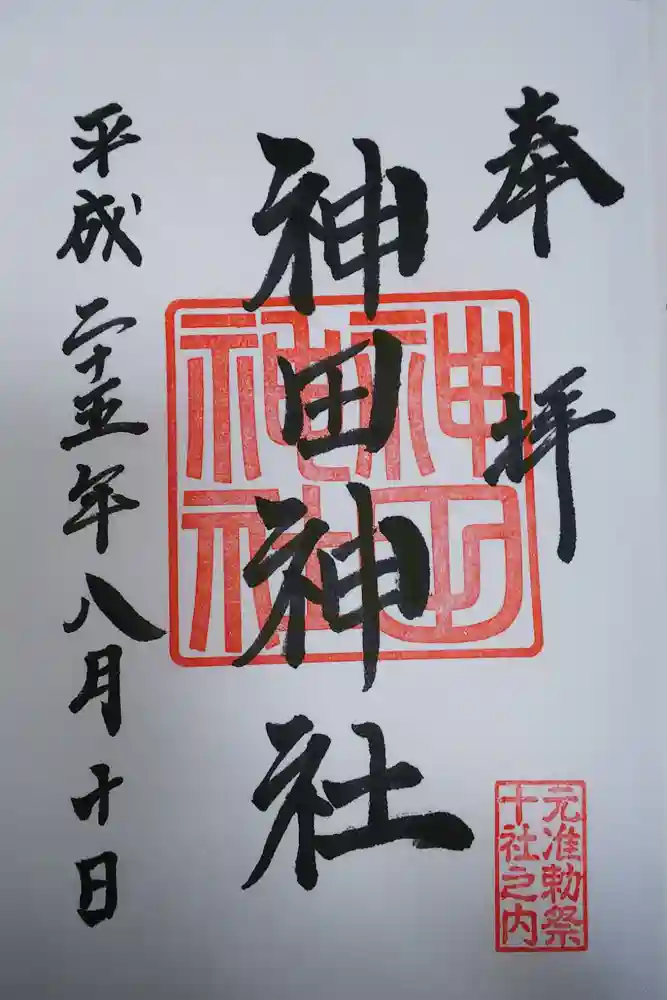 奉拝
神田神社
平成二十五年八月十日
神田
神社
元准勅祭
十社之内